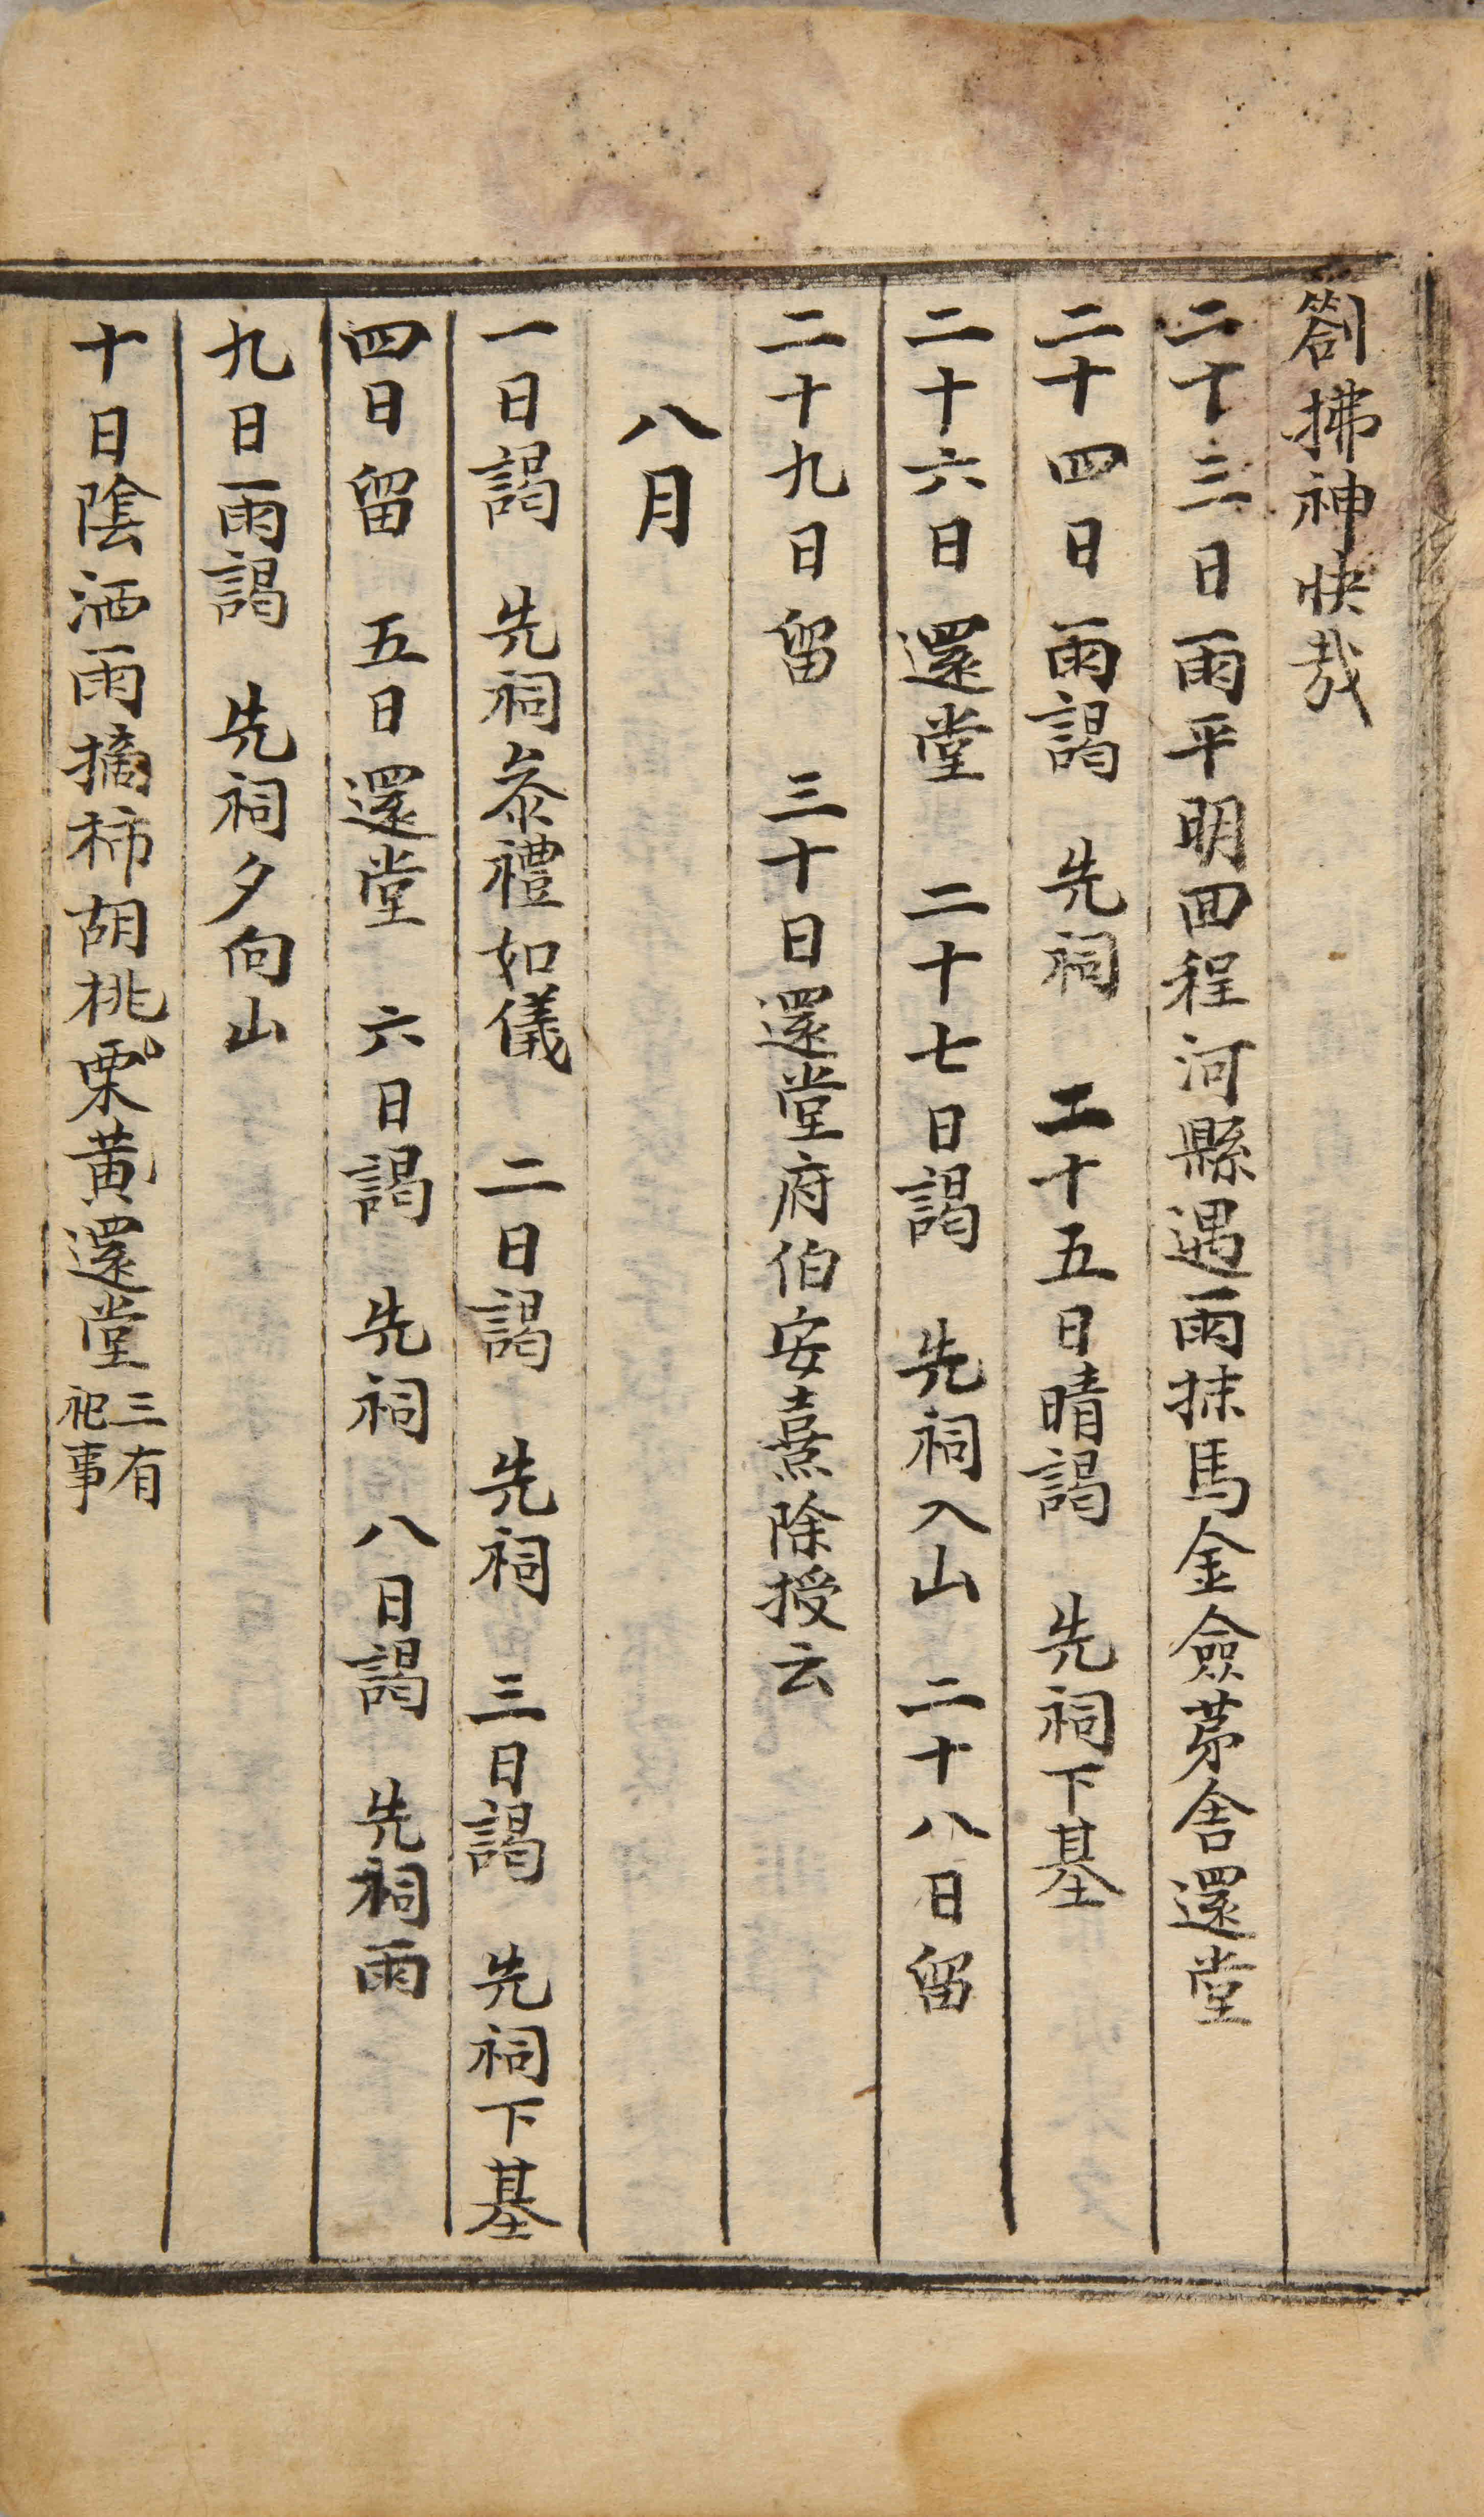 劄拂神快哉
二十三日雨平明回程河縣遇雨抹馬金僉茅舍還堂
二十四日雨謁 先祠 二十五日晴謁 先祠下基
二十六日還堂 二十七日謁 先祠入山 二十八日留
二十九日留 三十日還堂府伯安熹除授云
八月
一日謁 先祠叅禮如儀 二日謁 先祠 三日謁 先祠下基
四日留 五日還堂 六日謁 先祠 八日謁 先祠雨
九日雨謁 先祠夕向山
十日陰洒雨摘柿胡桃栗黃還堂三有祀事